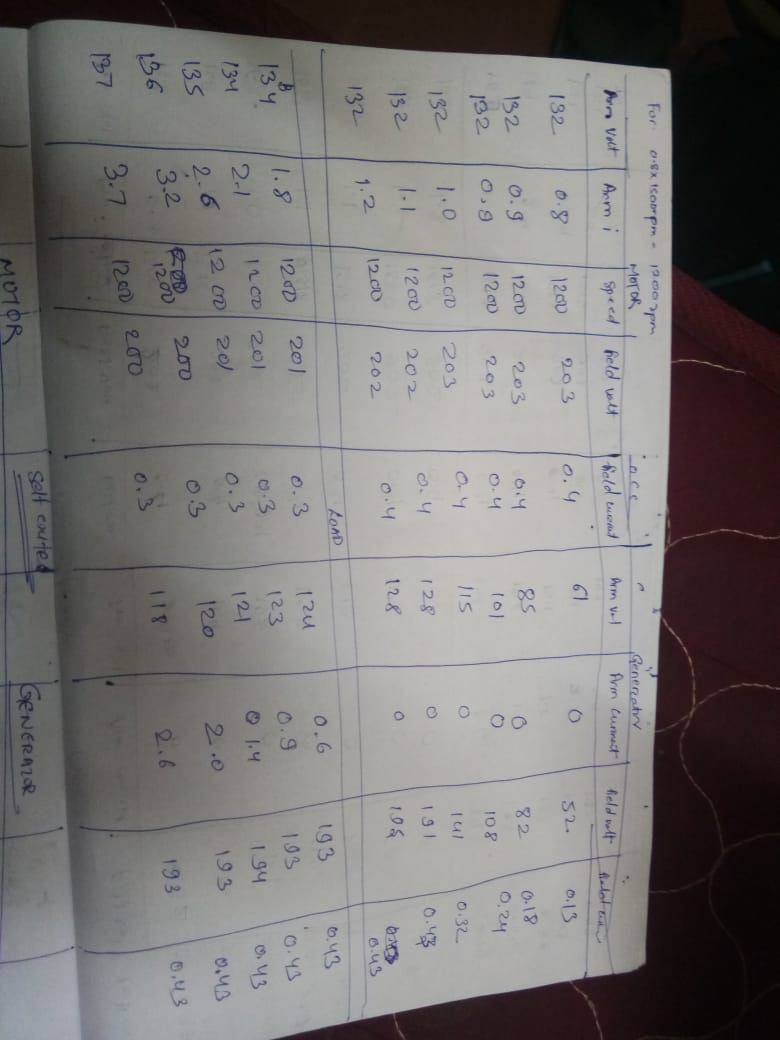 For 0.8x1500rpm = 1200rpm
MOTOR Generator
Arm Volt Arm i Speed field volt field current Arm vol Arm current field volt
132 0.8 1200 203 0.4 61 0 52 0.13
132 0.9 1200 203 0.4 85 0 82 0.18
132 0.9 1200 203 0.4 101 0 108 0.24
132 1.0 1200 203 0.4 115 0 141 0.32
132 1.1 1200 202 0.4 128 0 191 0.43
132 1.2 1200 202 0.4 128 0 195 0.43
LOAD
134 1.8 1200 201 0.3 124 0.6 193 0.43
134 2.1 1200 201 0.3 123 0.9 193 0.43
135 2.6 1200 201 0.3 121 1.4 194 0.43
136 3.2 1200 200 0.3 120 2.0 193 0.43
137 3.7 1200 200 0.3 118 2.6 193 0.43
MOTOR Self excited GENERATOR